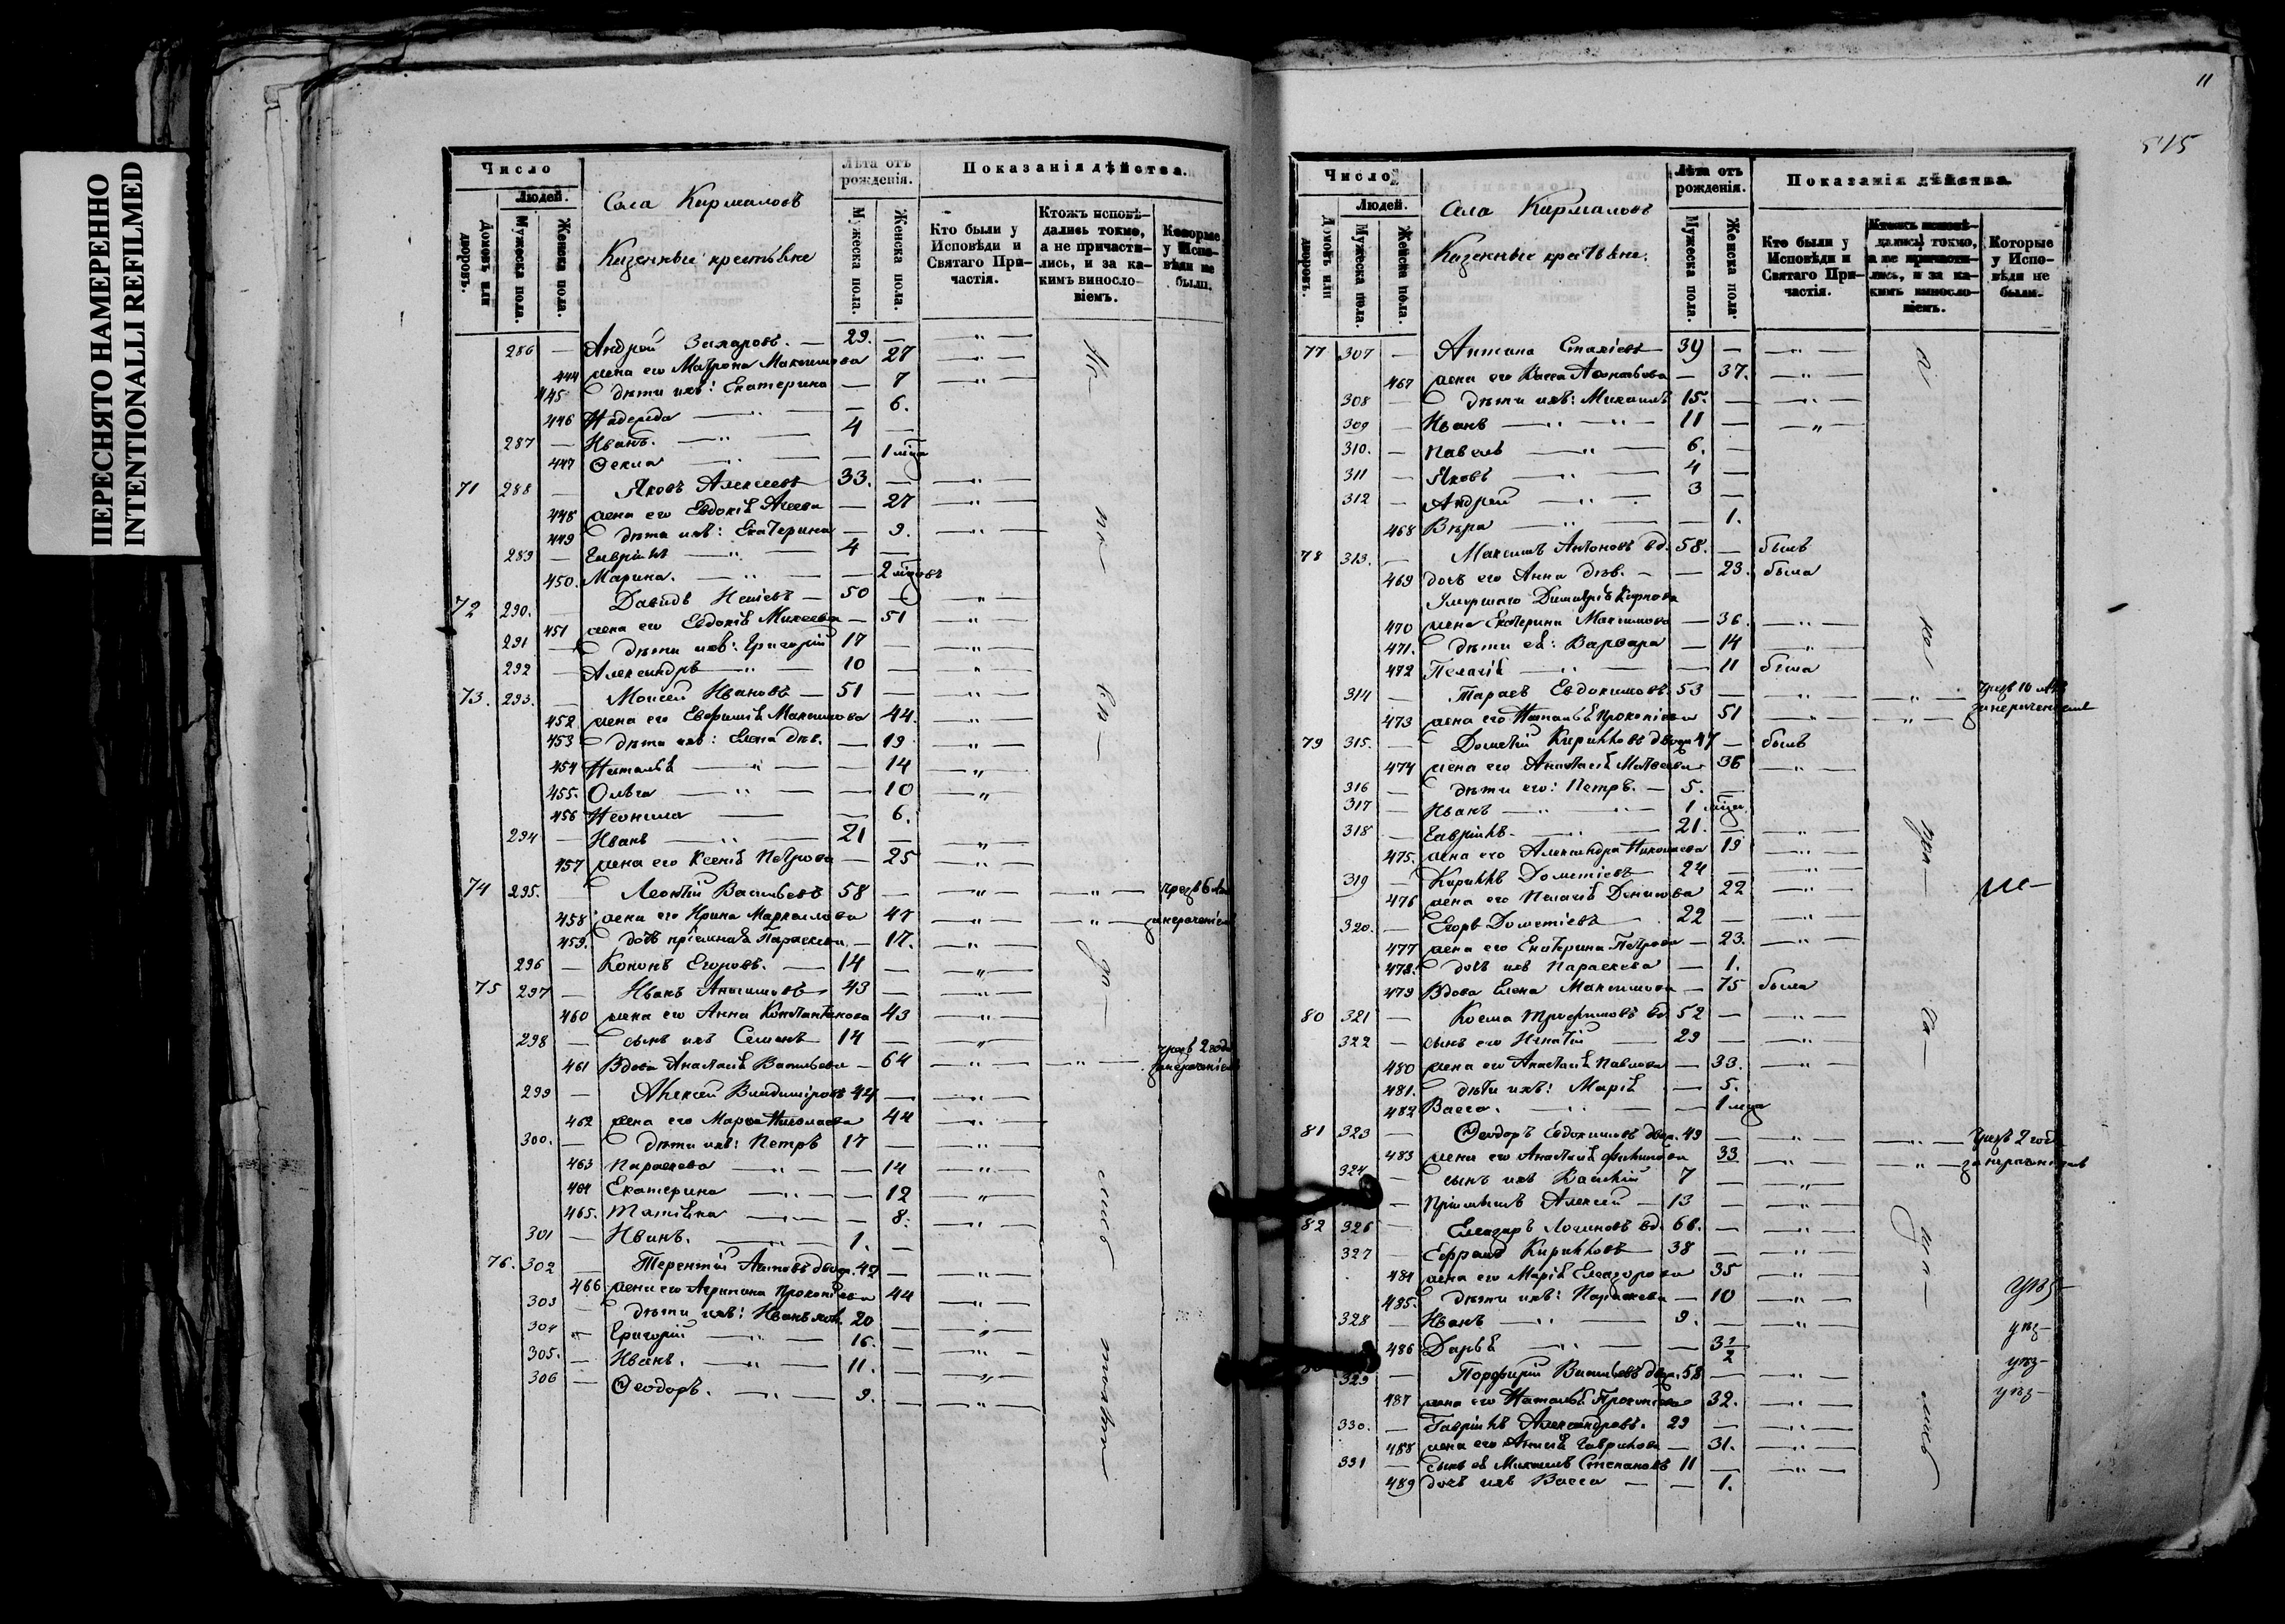 ПЕРЕСНЯТО НАМЕРЕННО
INTENTIONALLI REFILMED
Число
Людей.
Домовъ или дворовъ.
Мужеска пола.
Женска пола.
Села Кармаловъ
Казенные крестьяне
Лѣта отъ рожденія.
Мужеска пола.
Женска пола.
Показанія дѣйства.
Кто были у Исповѣди и Святаго Причастія.
Ктожъ исповѣдались токмо, а не причастились, и за какимъ винословіемъ.
Которые у Исповѣди не были.
286 — Андрей Захаровъ. — 29. — „
444 жена его Матрона Максимова 27 — „
445 дѣти ихъ: Екатерина — 7 — „
446 Надежда — „ — 6.
287 — Иванъ. — „ — 4 —
447 Ѳекла — „ — 1 мца
71 288 — Яковъ Алексеевъ 33. — „
448 жена его Евдокія — 27 — „
449 дѣти ихъ: Екатерина — 9. — „
289 — Гавріилъ — „ — 4 —
450. Марина. — „ — 2 мцовъ
72 290. — Давидъ — 50 — „
451 жена его Евдокія Михеева — 51 — „
291 — дѣти ихъ: Григорій 17 — „
292 — Александръ — „ — 10 — „
73. 293. — Моисей Ивановъ — 51 — „
452 жена его Евфимія Максимова 44. — „
453 дѣти ихъ: Елена дѣв. — 19 — „
454 Наталья — „ — 14 — „
455. Ольга — „ — 10 — „
456 Неонила — 6.
294 — Иванъ — „ — 21 — „
457 жена его Ксенія Петрова — 25 — „
74 295. — Леонтій Васильевъ 58 — „ — „ —
458 жена его Ирина 47 — „ — „ —
459. дочь пріемная Параскева — 17. — „
296 — Кононъ Егоровъ. — 14 — „
75 297 — Иванъ 43 — „
460 жена его Анна Константинова 43 — „
298 — сынъ ихъ Семенъ 14 — „
461 Вдова Анастасія Васильева — 64 — „ — „ — чрезъ 2 года
299 — Алексей Владиміровъ 44 — „
462 жена его Марѳа Николаева 44 — „
300. — дѣти ихъ: Петръ 17 — „
463 Параскева — „ — 14 — „
464 Екатерина — „ — 12 — „
465. Татіана — „ — 8. — „
301 — Иванъ. — „ — 1. —
76. 302 — Терентій 42 — „
466 жена его Агрипина Прокопіева 44 — „
303 — дѣти ихъ: Иванъ 20 — „
304 „ Григорій — „ — 16. — „
305. — Иванъ. — „ — 11. — „
306 — Ѳеодоръ. — „ — 9. — „
11
515
Число
Людей.
Домовъ или дворовъ.
Мужеска пола.
Женска пола.
Села Кармаловъ
Казенные крестьяне.
Лѣта отъ рожденія.
Мужеска пола.
Женска пола.
Показанія дѣйства.
Кто были у Исповѣди и Святаго Причастія.
Ктожъ исповѣдались токмо, а не причастились, и за какимъ винословіемъ.
Которые у Исповѣди не были.
77 307 — 39 — „
467 жена его Васса — 37. — „
308 — дѣти ихъ: Михаилъ 15. — „
309 — Иванъ — „ — „ — 11 — „
310. — Павелъ — „ — 6. —
311 — Яковъ — „ — 4 —
312 — Андрей — „ — 3 —
468 Вѣра — „ — 1.
78 313. — Максимъ Антоновъ вд. 58. — былъ
469 дочь его Анна дѣв. — 23. была
Умершаго Димитрія Карпова
470 жена Екатерина Максимова — 36. — „
471. дѣти ея: Варвара — 14 — „
472 Пелагія — „ — 11 была
314 — Тарасъ Евдокимовъ 53 — „ — „ —
473 жена его Наталья Прокопіева 51 — „ — „ —
79 315. — Дометій Кирилловъ 47 — былъ
474 жена его Анастасія Матвеева 36 — „
316 — дѣти его: Петръ. — 5. —
317 — Иванъ — „ — „ — 1 мца
318 — Гавріилъ. — „ — 21. — „
475. жена его Александра Николаева 19 — „
319 — Кириллъ Дометіевъ — 24 — „
476 жена его Пелагія 22 — „
320. — Егоръ Дометіевъ — 22 — „
477 жена его Екатерина Петрова — 23. — „
478. дочь ихъ Параскева — 1.
479 Вдова Елена Максимова — 75 была
80 321 — Косма Трофимовъ вд 52 — „
322 — сынъ его Игнатій — 29 — „
480 жена его Анастасія Павлова — 33. — „
481. дѣти ихъ: Марія — 5.
482 Васса. — „ — 1 мца
81 323 — Ѳеодоръ Евдокимовъ 49 — „ — „ — чрезъ 2 года
483 жена его Анастасія 33 — „ — „ —
324 — сынъ ихъ 7 — „
— Алексей — 13 — „
82 326 — Елеазаръ вд. 66. — „
327 — Ефремъ Кирилловъ 38 — „
484 жена его Марія Елеазарова 35 — „
485. дѣти ихъ: Параскева — 10 — „
328 — Иванъ — „ — 9. — „
486 Дарья — „ — 3½
329 — Порфирій Васильевъ 58 — „
487 жена его Наталья 32. — „
330. — Гавріилъ Александровъ. 29 — „
488 жена его Гаврилова — 31. — „
331 — сынъ ея Михаилъ Степановъ 11 — „
489 дочь ихъ Васса — 1.